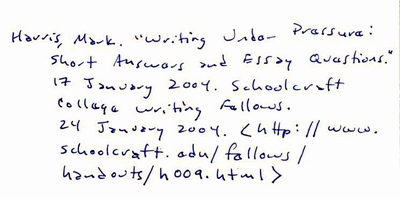 Harris, Mark. "Writing Under Pressure:
Short Answers and Essay Questions."
17 January 2004. Schoolcraft
College Writing Fellows.
24 January 2004. <http://www.
schoolcraft.edu/fellows/
handouts/h009.html>